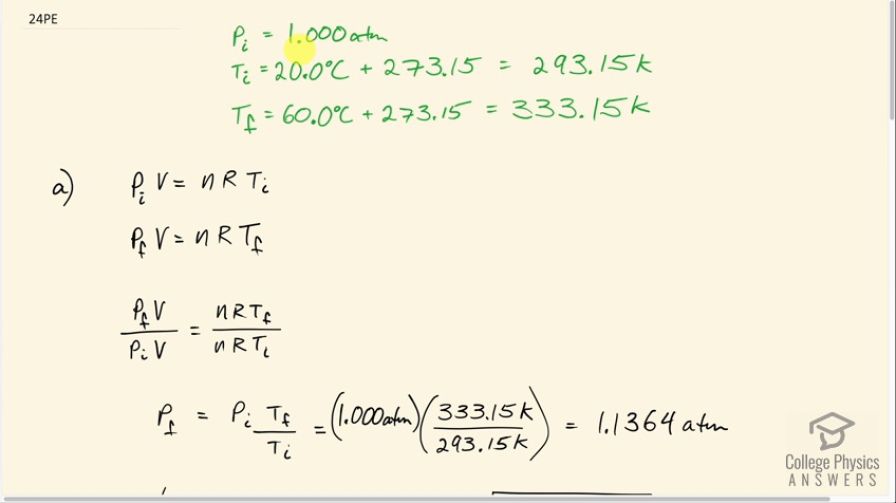 24PE
P_i = 1.000 atm
T_i = 20.0°C + 273.15 = 293.15 k
T_f = 60.0°C + 273.15 = 333.15 k
a) P_i V = n R T_i
P_f V = n R T_f
P_f V / P_i V = n R T_f / n R T_i
P_f = P_i T_f / T_i = (1.000 atm) (333.15 k / 293.15 k) = 1.1364 atm
College Physics
ANSWERS